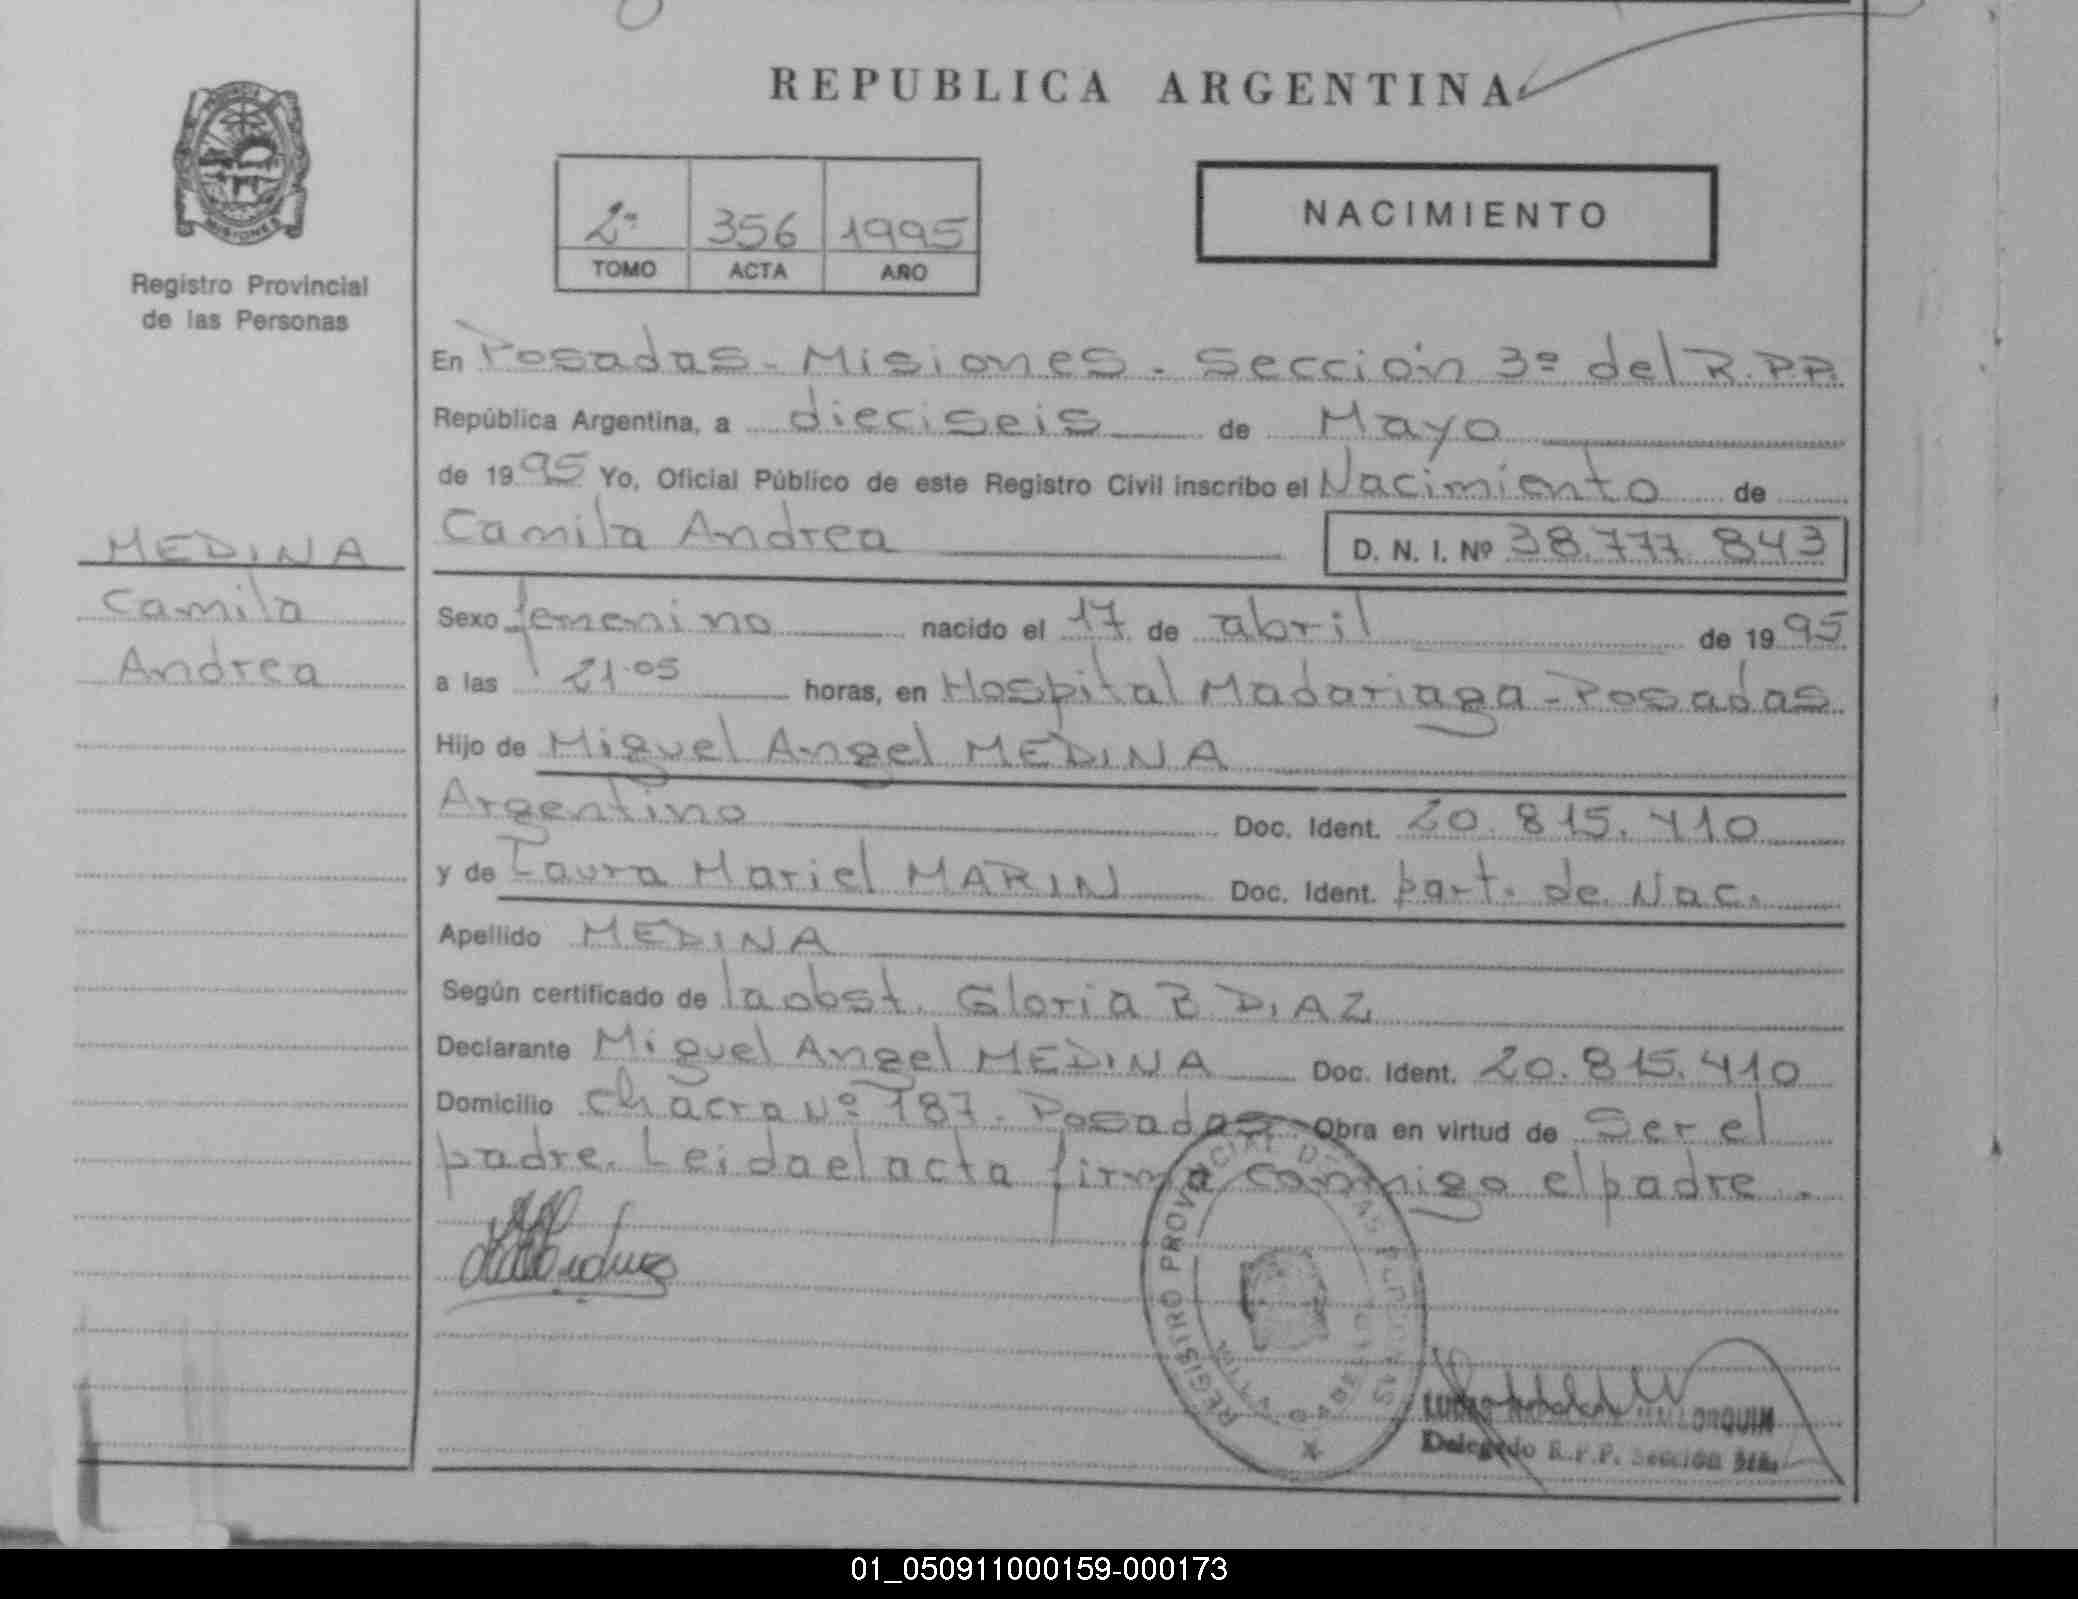 REPUBLICA ARGENTINA
PROVINCIA
MISIONES
Registro Provincial
de las Personas
2º 356 1995
TOMO ACTA AÑO
NACIMIENTO
En Posadas - Misiones. Sección 3º del R.P.P.
República Argentina, a dieciseis de Mayo
de 1995 Yo, Oficial Público de este Registro Civil inscribo el Nacimiento de
Camila Andrea D. N. I. Nº 38.777.843
MEDINA
Camila
Andrea
Sexo femenino nacido el 17 de abril de 1995
a las 21.05 horas, en Hospital Madariaga - Posadas.
Hijo de Miguel Angel MEDINA
Argentino Doc. Ident. 20.815.410
y de Laura Mariel MARIN Doc. Ident. part. de Nac.
Apellido MEDINA
Según certificado de la obst. Gloria B DIAZ
Declarante Miguel Angel MEDINA Doc. Ident. 20.815.410
Domicilio Chacra Nº 187. Posadas Obra en virtud de Ser el
padre. Leida el acta firma conmigo el padre.
REGISTRO PROVINCIAL DE LAS PERSONAS
MALLORQUIN
Delegado R.P.P. Sección
01_050911000159-000173